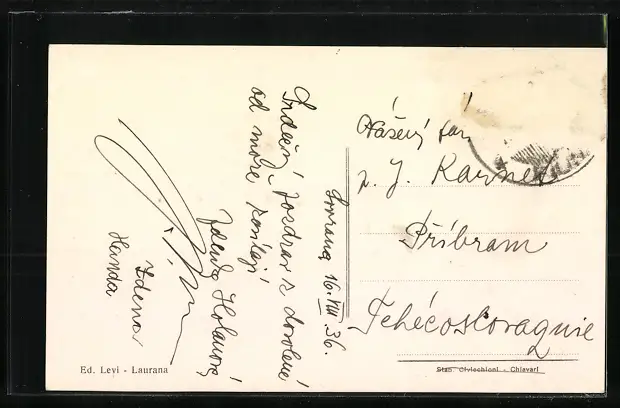 Srdečný pozdrav z dovolené
od moře posílají
Zdenka Holanová
Zdena
Handa
Laurana 16.VIII 36.
Vážený pán
p. J. Karnet
Příbram
Tchécoslovaquie
Ed. Levi - Laurana
Stab. Civicchioni - Chiavari